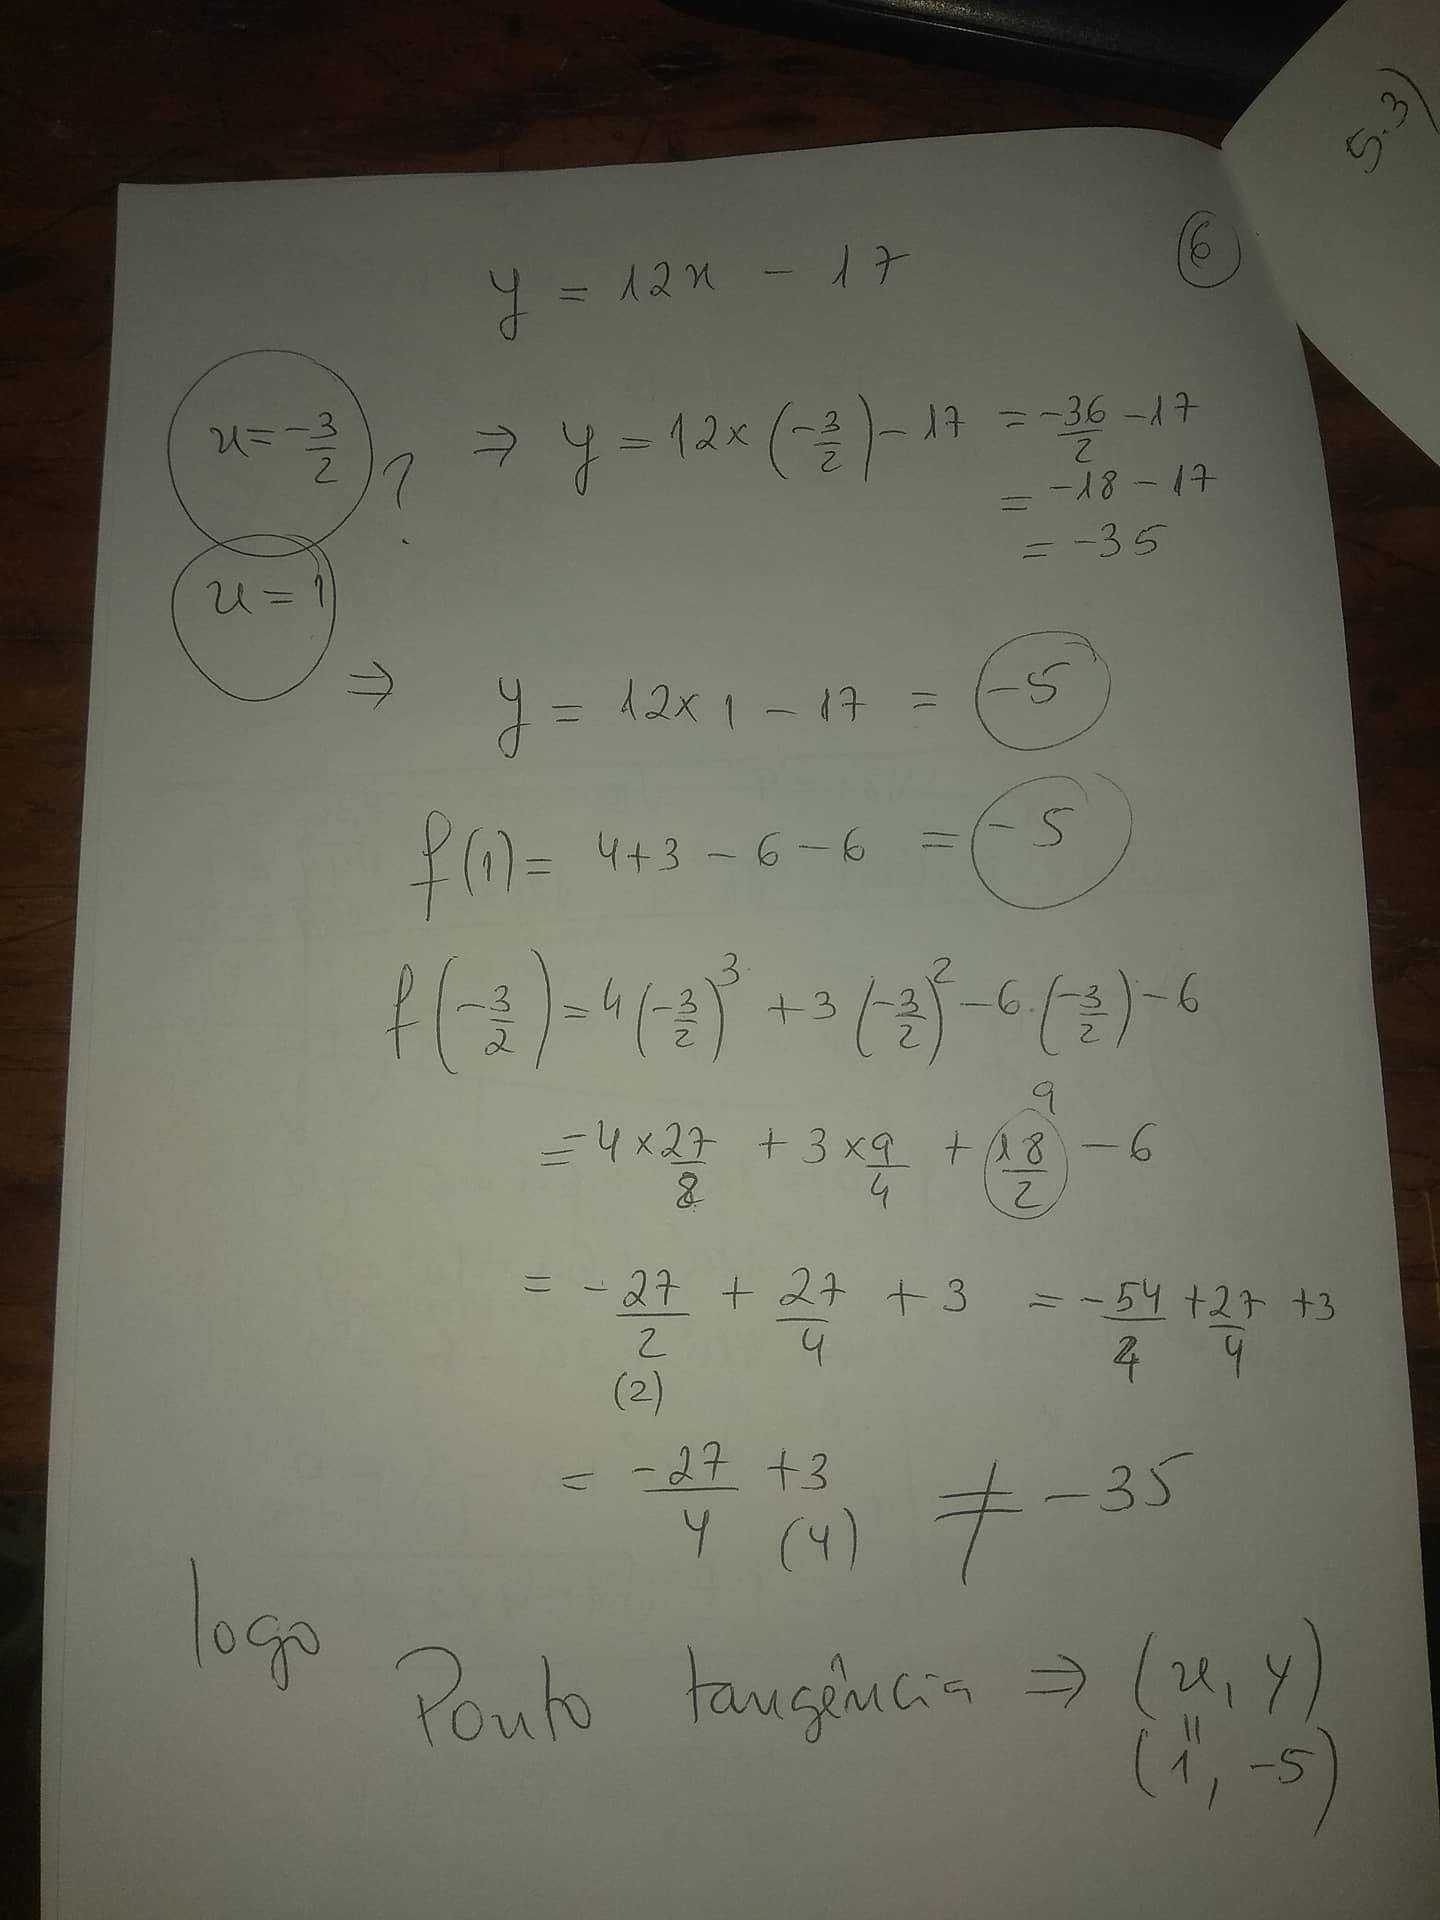 5.3)
6
y = 12x - 17
x = -3/2 ? ⇒ y = 12 × (-3/2) - 17 = -36/2 - 17
= -18 - 17
= -35
x = 1
⇒ y = 12 × 1 - 17 = -5
f(1) = 4+3 - 6 - 6 = -5
f(-3/2) = 4(-3/2)^3 + 3(-3/2)^2 - 6.(-3/2) - 6
9
= -4 × 27/8 + 3 × 9/4 + 18/2 - 6
= -27/2 + 27/4 + 3 = -54/4 + 27/4 + 3
(2)
= -27/4 + 3 ≠ -35
(4)
logo
Ponto tangência ⇒ (x, y)
"
(1, -5)